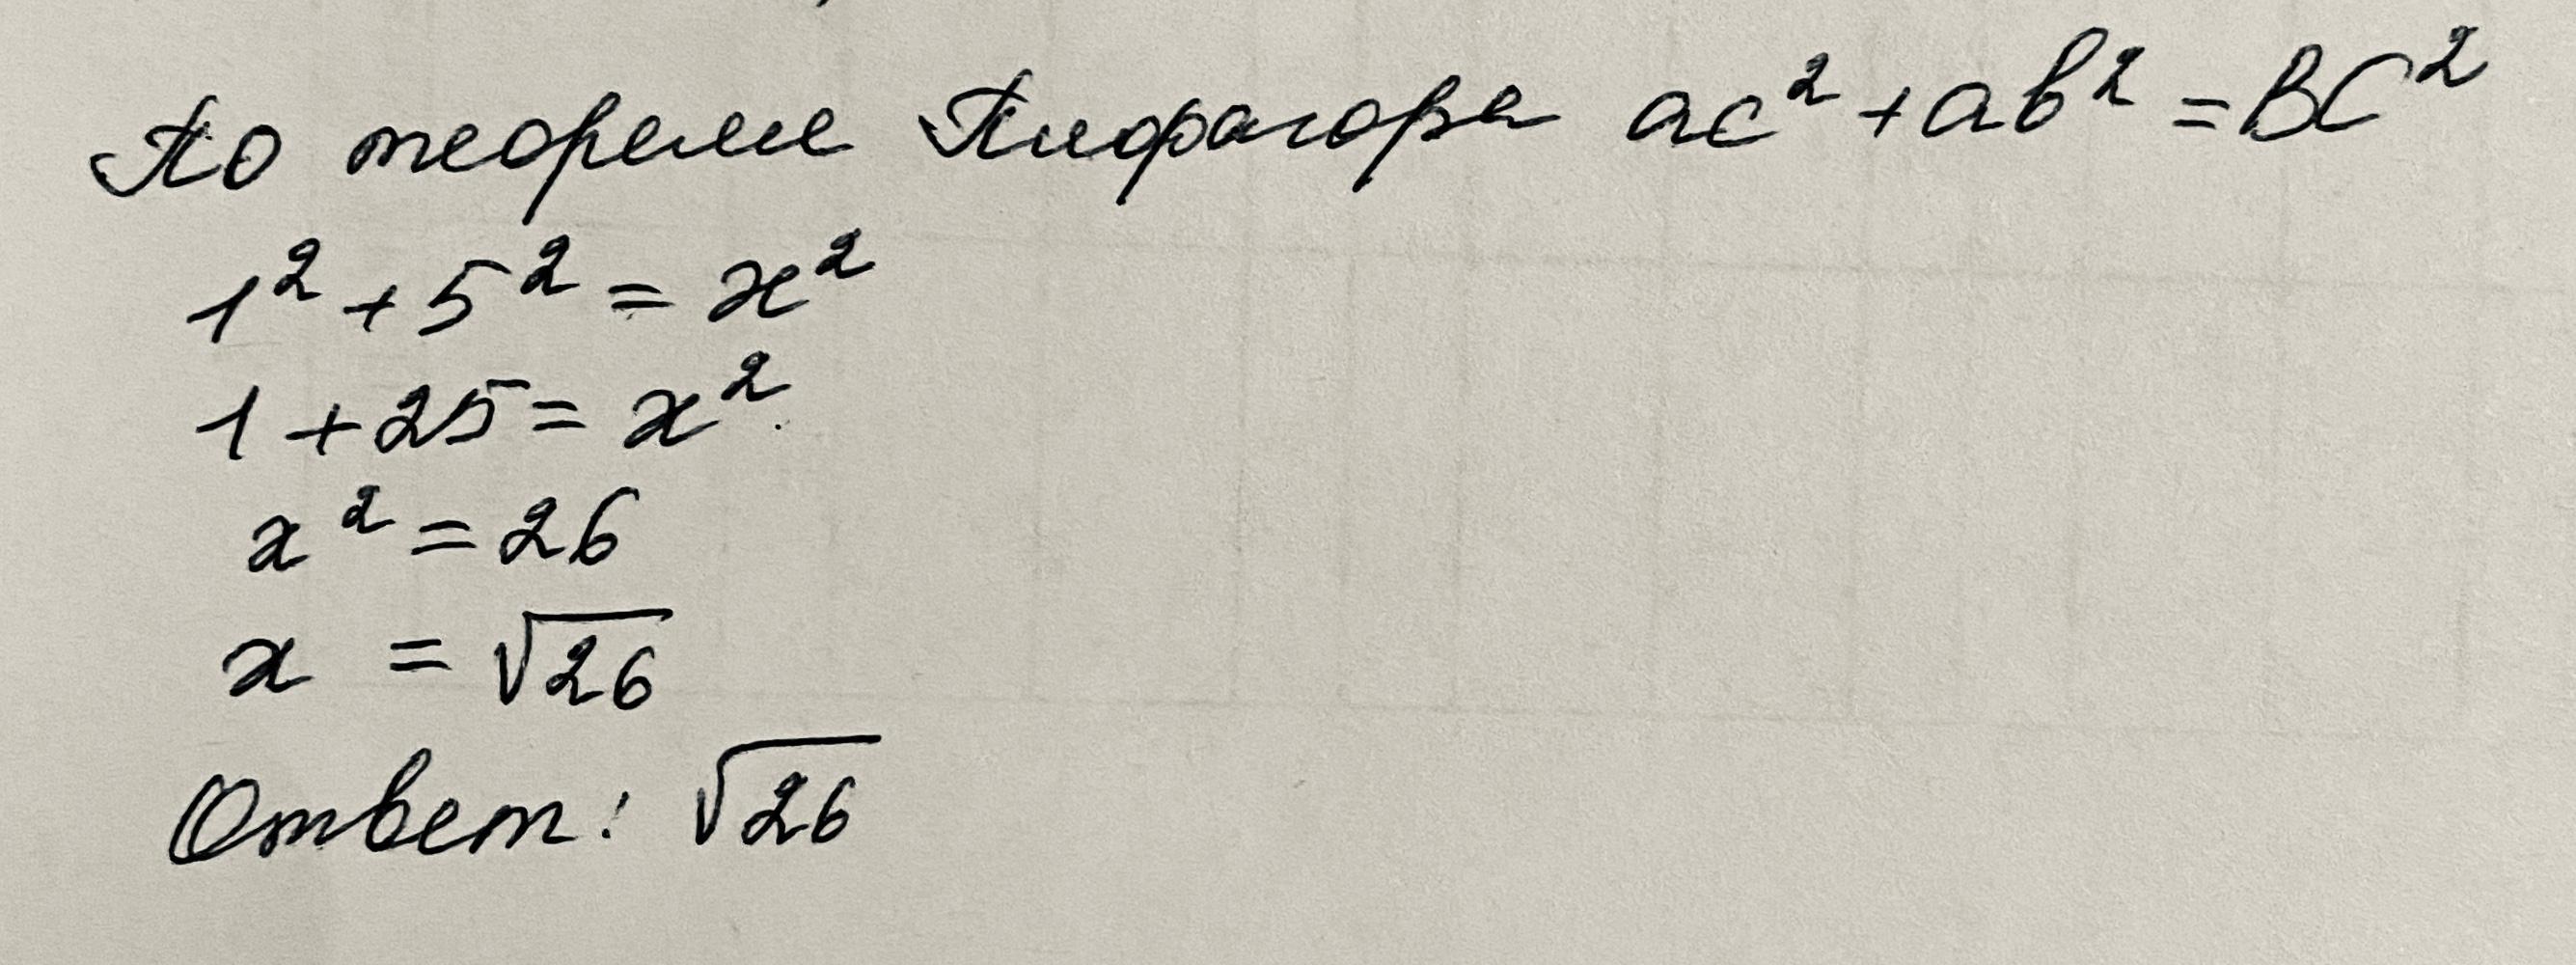 По теореме Пифагора ac² + ab² = BC²
1² + 5² = x²
1 + 25 = x²
x² = 26
x = √26
Ответ: √26